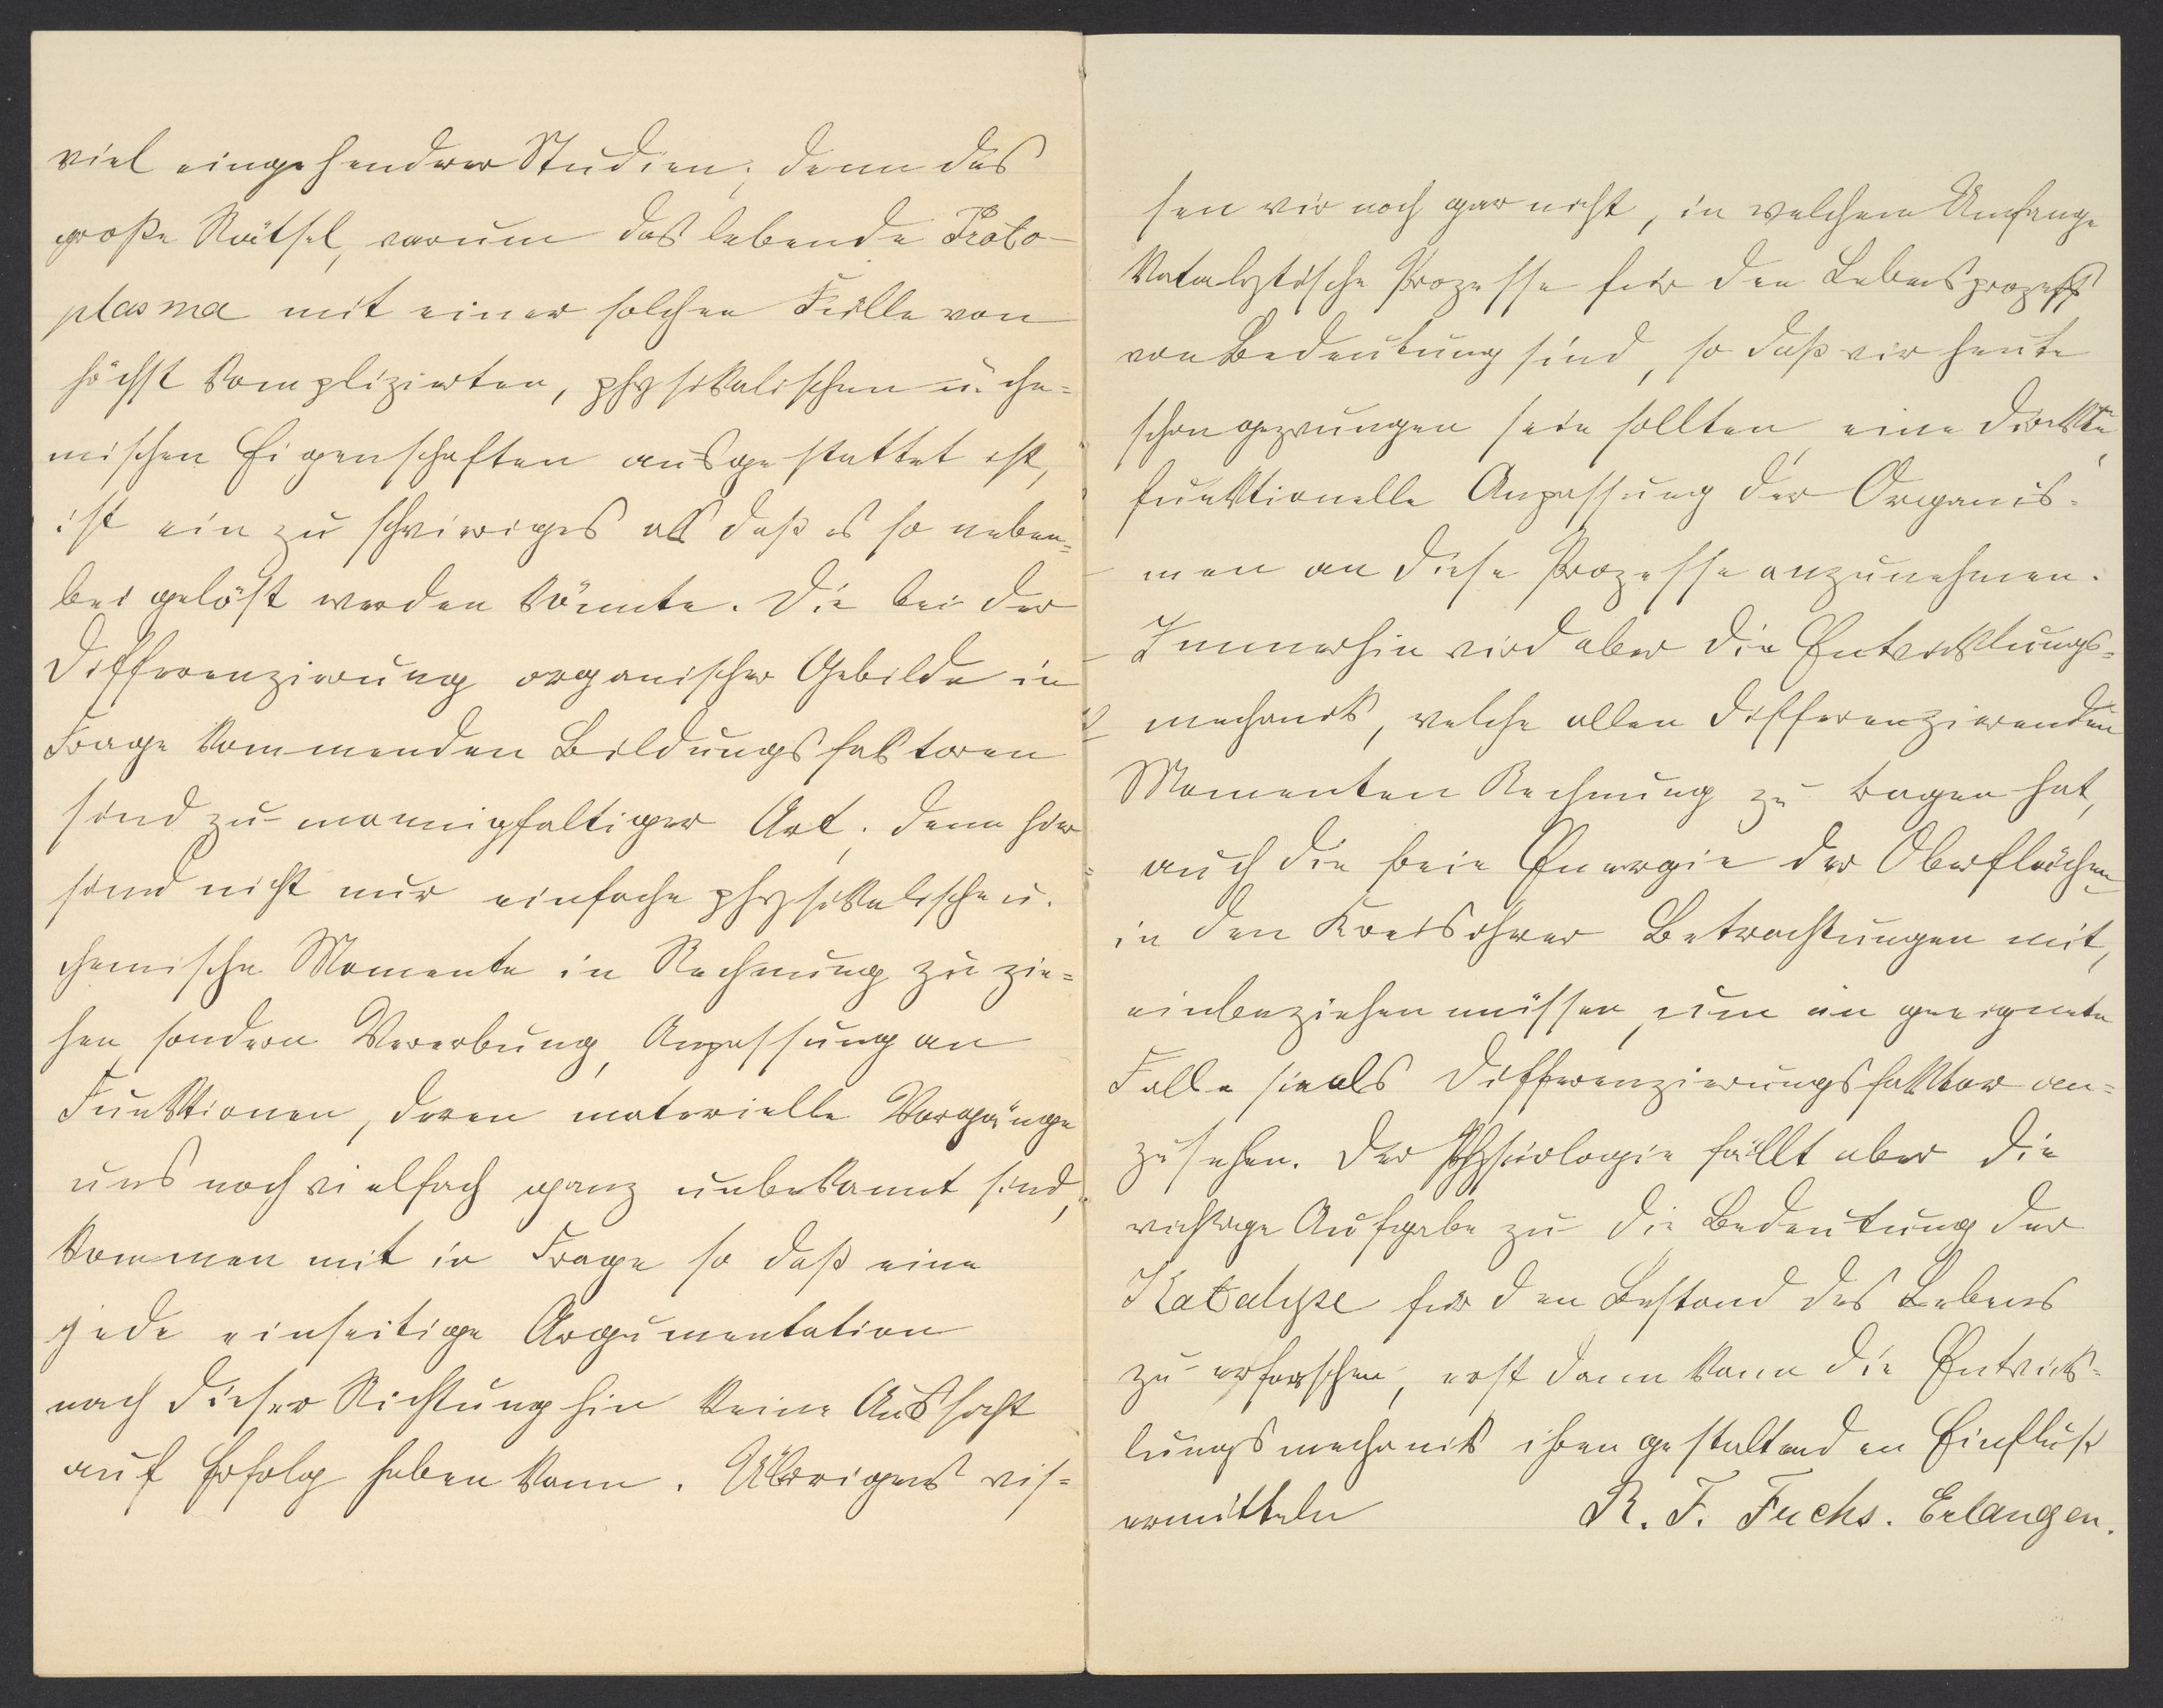 viel eingehenderer Studien; denn das
große Rätsel, warum das lebende Proto-
plasma mit einer solchen Fülle von
höchst komplizierten, physikalischen u. che=
mischen Eigenschaften ausgestattet ist,
ist ein zu schwieriges als daß es so neben=
bei gelöst werden könnte. Die bei der
Differenzierung organischer Gebilde in
Frage kommenden Bildungsfaktoren
sind zu mannigfaltiger Art; denn hier
sind nicht nur einfache physikalische u.
chemische Momente in Rechnung zu zie=
hen, sondern Vererbung, Anpassung an
Funktionen, deren materielle Vorgänge
uns noch vielfach ganz unbekannt sind,
kommen mit in Frage so daß eine
jede einseitige Argumentation
nach dieser Richtung hin keine Aussicht
auf Erfolg haben kann. Übrigens wis=
sen wir noch gar nicht, in welchem Umfange
Katalytische Prozesse für den Lebensprozess
von Bedeutung sind, so daß wir heute
schon gezwungen sein sollten, eine direkte,
funktionelle Anpassung der Organis=
men an diese Prozesse anzunehmen.
Immerhin wird aber die Entwicklungs=
mechanik, welche allen differenzierenden
Momenten Rechnung zu tragen hat,
auch die freie Energie der Oberflächen
in den Kreis ihrer Betrachtungen mit,
einbeziehen müssen, um im geeigneten
Falle sie als Differenzierungsfaktor an=
zusehen. Der Physiologie fällt aber die
wichtige Aufgabe zu die Bedeutung der
Katalyse für den Bestand des Lebens
zu erforschen, erst dann kann die Entwick=
lungsmechanik ihren gestaltenden Einfluß
ermitteln R. F. Fuchs. Erlangen.